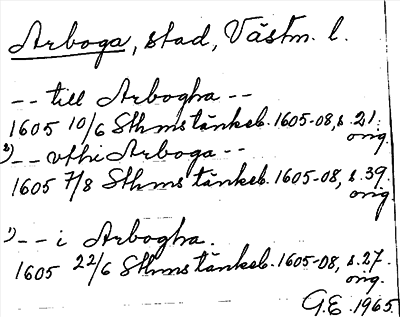 Arboga, stad, Västm. l.
-- till Arbogha --
1605 10/6 Sthms tänkeb. 1605-08, s. 21.
orig.
2) -- vthi Arboga --
1605 7/8 Sthms tänkeb. 1605-08, s. 39.
orig.
1) -- i Arbogha.
1605 22/6 Sthms tänkeb. 1605-08, s. 27.
orig.
G.E. 1965.